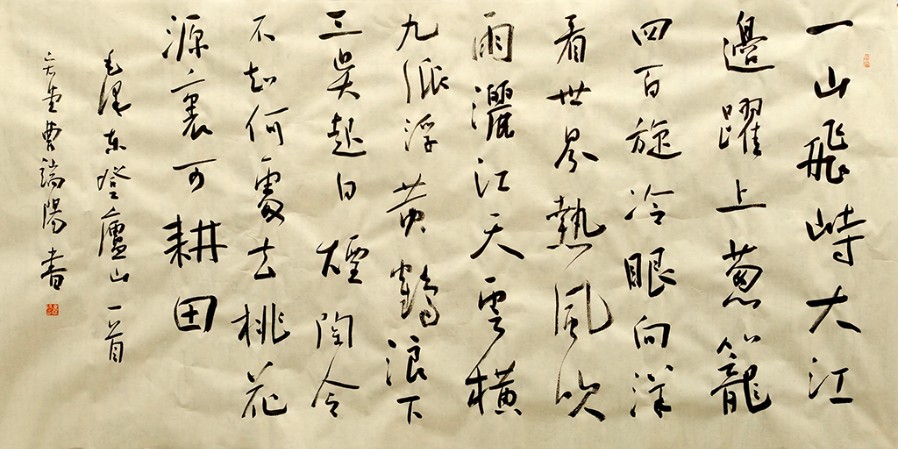 一山飛峙大江
邊躍上葱籠
四百旋冷眼向洋
看世界熱風吹
雨灑江天雲橫
九派浮黄鶴浪下
三吳起白煙陶令
不知何處去桃花
源裏可耕田
毛澤東登廬山一首
曹端陽書